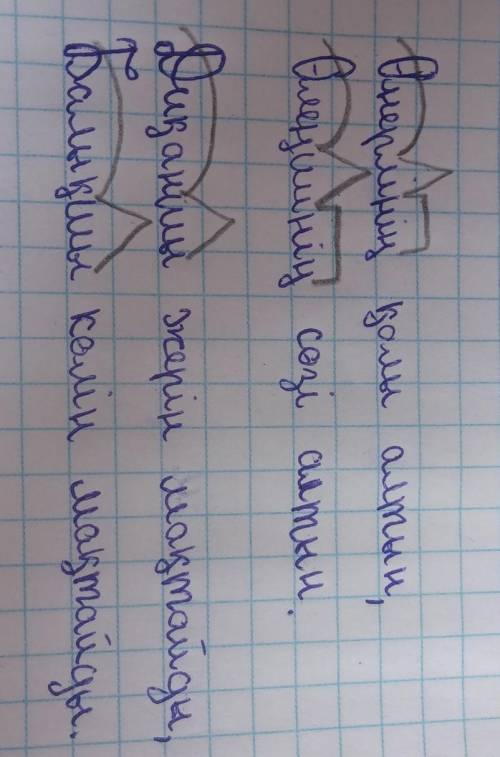 Өнерлінің қолы алтын,
Өлеңшінің сөзі алтын.
Диқаншы жерін мақтайды,
Балықшы көлін мақтайды.